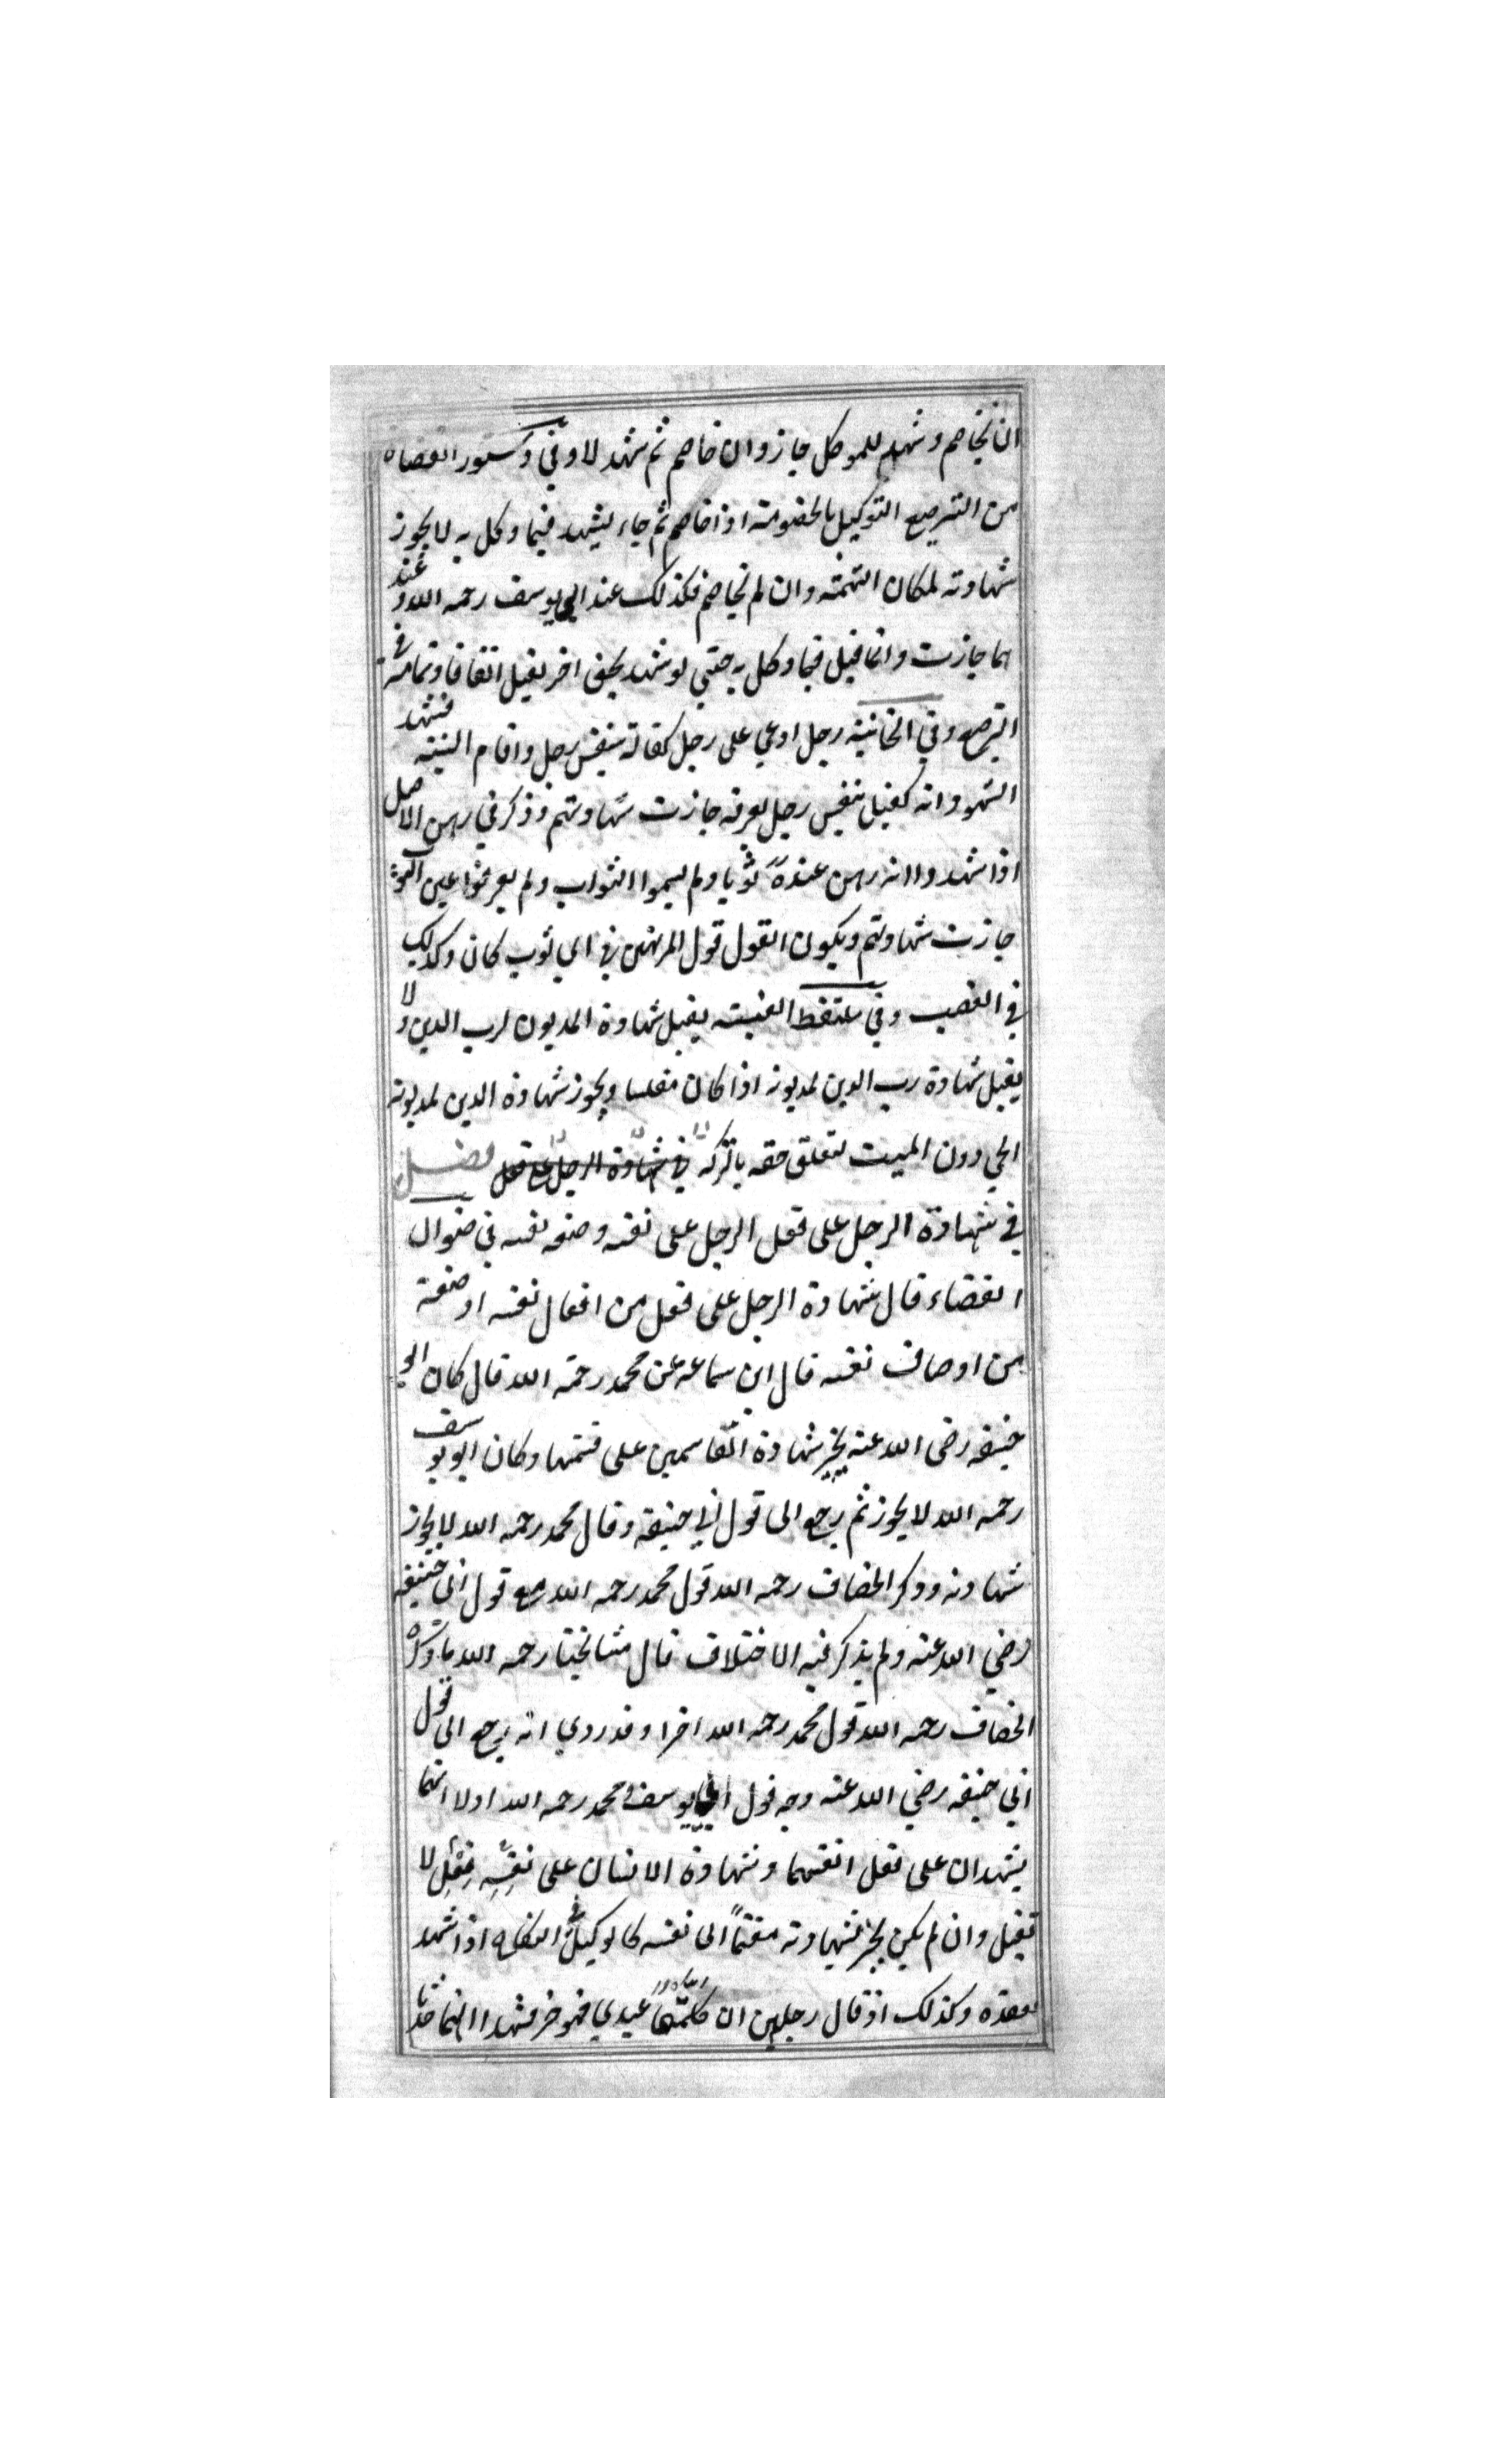 ان يخاصم وشهد للموكل جاز وان خاصم ثم شهد لا وفي دستور القضاة
من الترصيع التوكيل بالخصومة اذا خاصم ثم جاء ليشهد فيما وكل به لا يجوز
شهادته لمكان التهمة وان لم يخاصم فكذلك عند ابي يوسف رحمه الله وعند
هما جازت وانما قيل فيما وكل به حتى لو شهد بحق اخر يقبل اتفاقا وتمامه في
الترصيع وفي الخانية رجل ادعي على رجل كفالة بنفس رجل واقام البينة فشهد
الشهود انه كفيل بنفس رجل يعرفه جازت شهادتهم وذكر في رهن الاصل
اذا شهدوا انه رهن عنده ثوبا ولم يسموا الثواب ولم يعرفوا عين الثوب
جازت شهادتهم ويكون القول قول المرتهن في اي ثوب كان وكذلك
في الغصب وفي ملتقط الغنية يقبل شهادة المديون لرب الدين ولا
يقبل شهادة رب الدين لمديونه اذا كان مفلسا ويجوز شهادة الدين لمديونه
الحي دون الميت لتعلق حقه بالتركة في شهادة الرجل على فعل فصل
في شهادة الرجل على فعل الرجل على نفسه وصفه نفسه في صنوال
القضاء قال شهادة الرجل على فعل من افعال نفسه او صفة
من اوصاف نفسه قال ابن سماعه عن محمد رحمة الله قال كان ابو
حنيفه رضى الله عنه يجيز شهادة القاسمين على قسمتهما وكان ابو يوسف
رحمه الله لا يجوز ثم رجع الى قول ابي حنيفة وقال محمد رحمه الله لا يجوز
شهادته وذكر الخصاف رحمه الله قول محمد رحمه الله مع قول ابي حنيفه
رضي الله عنه ولم يذكر فيه الاختلاف قال مشايخنا رحمه الله ما ذكره
الخصاف رحمه الله قول محمد رحمه الله اخرا وقد روي انه رجع الى قول
ابي حنيفه رضي الله عنه وجه قول ابي يوسف ومحمد رحمه الله اولا انهما
يشهدان على فعل انفسهما وشهادة الانسان على نفسه فعل لا
تقبل وان لم يكن يجر بشهادته مغنماً الى نفسه كالوكيل في النكاح اذا شهد
بعقده وكذلك اذ قال رجلين ان كلمتما عبدي فهو حر فشهدا انهما